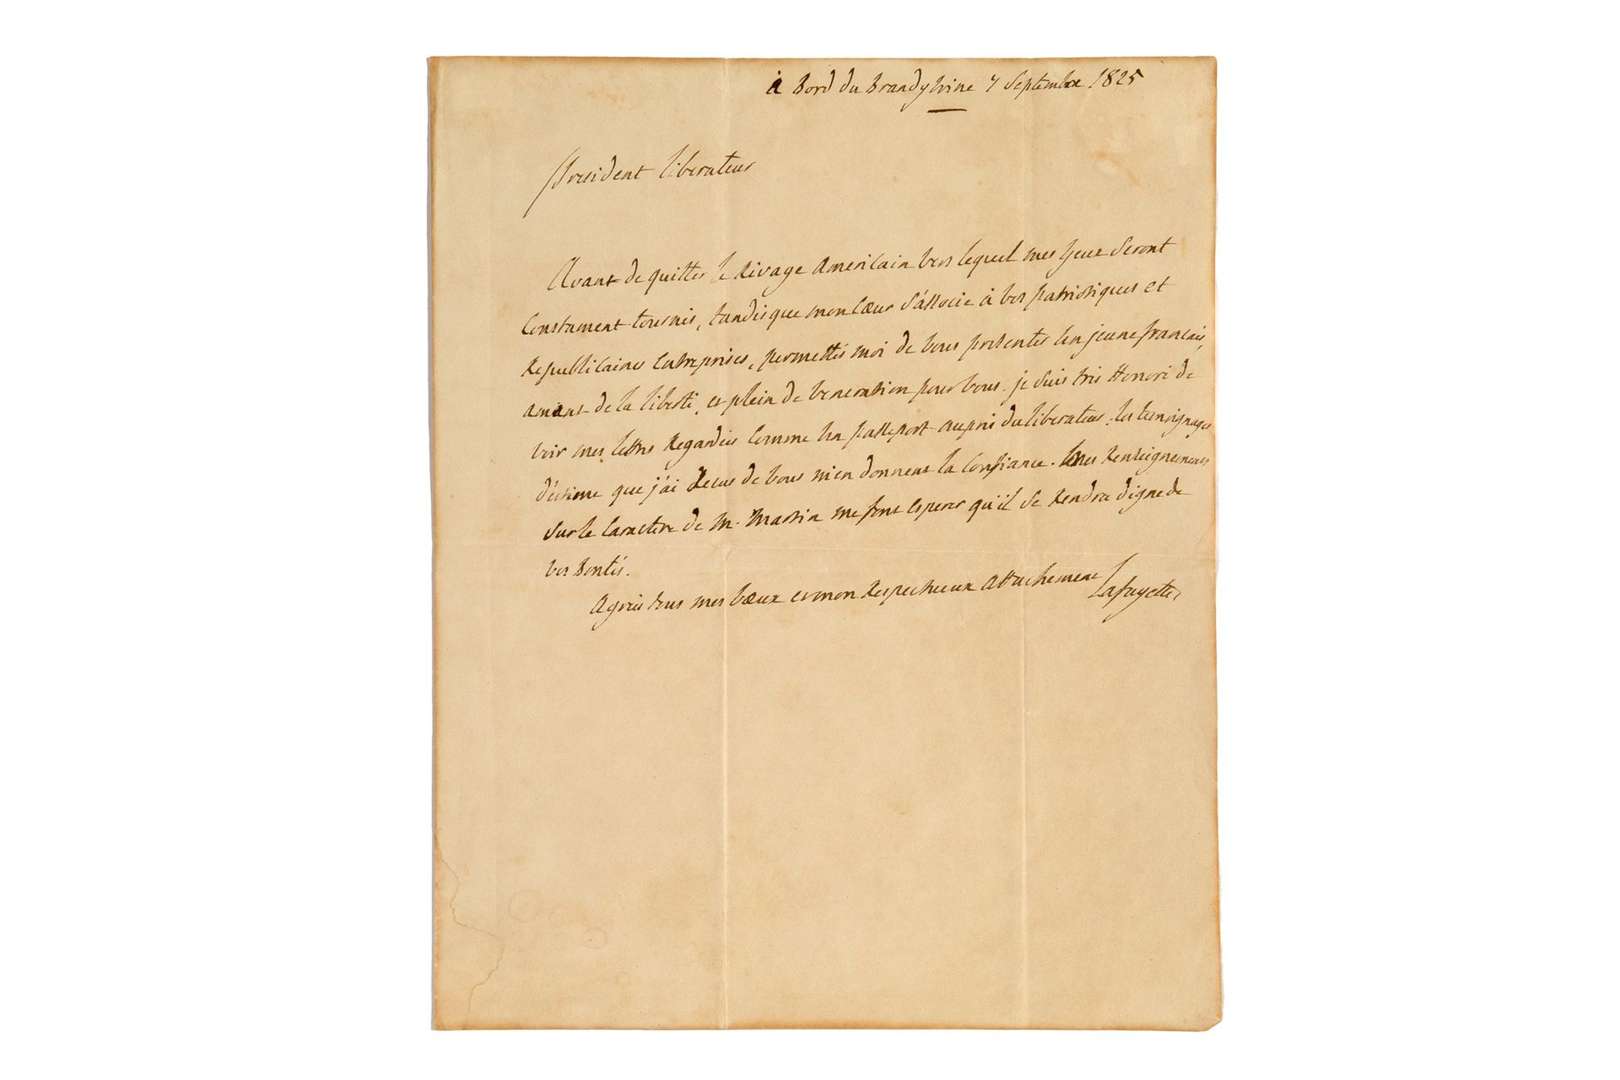 à Bord du Brandywine 7 Septembre 1825
President liberateur
Avant de quitter le Rivage Americain vers lequel mes yeux Seront
Constament tournés, tandisque mon Cœur S'associe à vos patriotiques et
Republicaines Entreprises, permettés moi de vous presenter un jeune francais,
amant de la liberté, et plein de veneration pour vous. je Suis très Honoré de
voir mes lettres Regardées Comme un passeport auprès du liberateur. les temoignages
d'estime que j'ai Recus de vous m'en donnent la Confiance. mes Renseignemens
Sur le Caractère de M. Martin me font esperer qu'il Se Rendra digne de
vos Bontés.
Agréés tous mes vœux et mon Respectueux attachement
Lafayette